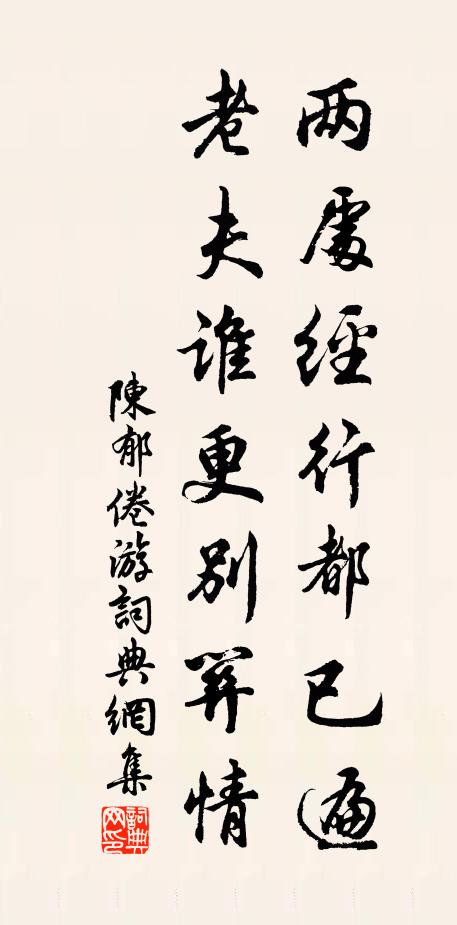 两處經行都已遍
老夫誰更別筭情
陳郁倦游詞典網集
詞典网印